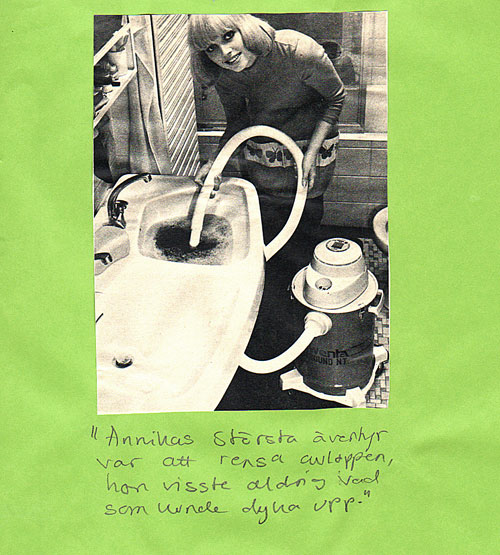 "Annikas största äventyr
var att rensa avloppen,
hon visste aldrig vad
som kunde dyka upp."